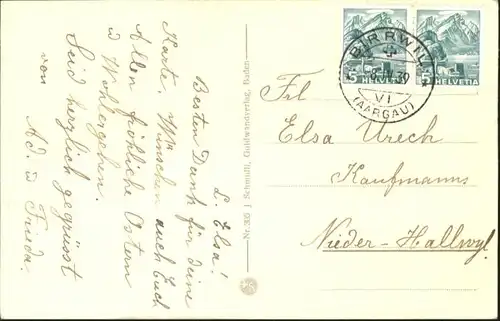 L. Elsa!
Besten Dank für deine
Karte. Wünschen auch Euch
Allen fröhliche Ostern
u Wohlergehen.
Seid herzlich gegrüsst
von
Ad. u Frieda.
Nr. 305 J. Schmidli, Goldwandverlag, Baden
BIRRWIL
IV. 39
VI
(AARGAU)
5
HELVETIA
5
HELVETIA
Frl
Elsa Urech
Kaufmanns
Nieder-Hallwyl